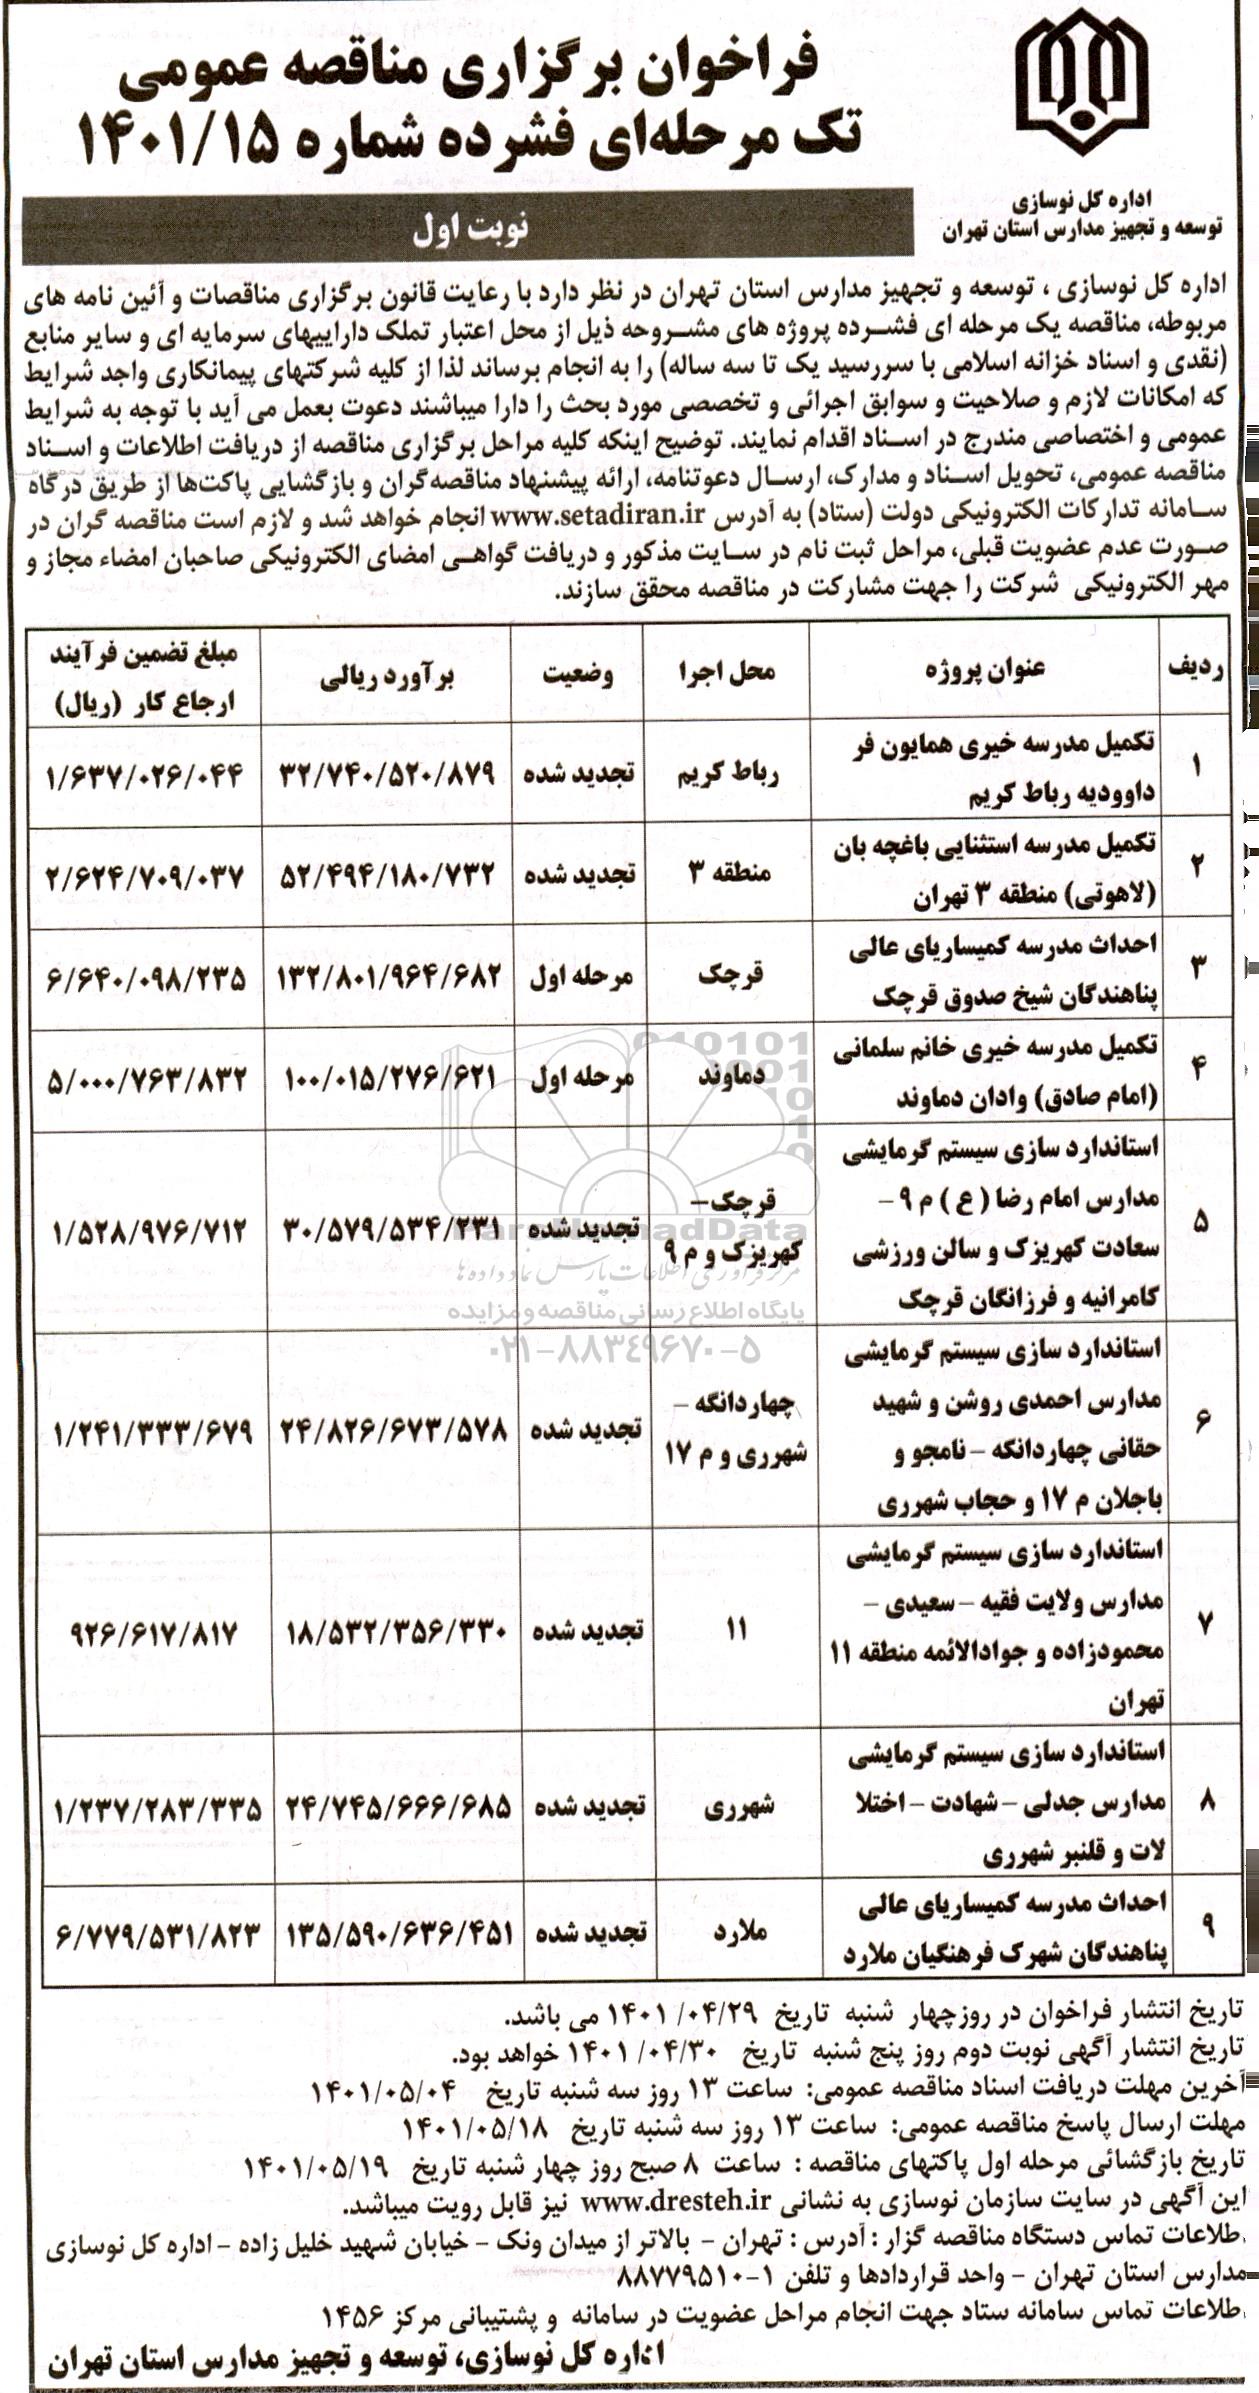 فراخوان برگزاری مناقصه عمومی
تک مرحله‌ای فشرده شماره ۱۴۰۱/۱۵
اداره کل نوسازی
توسعه و تجهیز مدارس استان تهران
نوبت اول
اداره کل نوسازی ، توسعه و تجهیز مدارس استان تهران در نظر دارد با رعایت قانون برگزاری مناقصات و آئین نامه های
مربوطه، مناقصه یک مرحله ای فشرده پروژه های مشروحه ذیل از محل اعتبار تملک داراییهای سرمایه ای و سایر منابع
(نقدی و اسناد خزانه اسلامی با سررسید یک تا سه ساله) را به انجام برساند لذا از کلیه شرکتهای پیمانکاری واجد شرایط
که امکانات لازم و صلاحیت و سوابق اجرائی و تخصصی مورد بحث را دارا میباشند دعوت بعمل می آید با توجه به شرایط
عمومی و اختصاصی مندرج در اسناد اقدام نمایند. توضیح اینکه کلیه مراحل برگزاری مناقصه از دریافت اطلاعات و اسناد
مناقصه عمومی، تحویل اسناد و مدارک، ارسال دعوتنامه، ارائه پیشنهاد مناقصه‌گران و بازگشایی پاکت‌ها از طریق درگاه
سامانه تدارکات الکترونیکی دولت (ستاد) به آدرس www.setadiran.ir انجام خواهد شد و لازم است مناقصه گران در
صورت عدم عضویت قبلی، مراحل ثبت نام در سایت مذکور و دریافت گواهی امضای الکترونیکی صاحبان امضاء مجاز و
مهر الکترونیکی شرکت را جهت مشارکت در مناقصه محقق سازند.
ردیف عنوان پروژه محل اجرا وضعیت برآورد ریالی مبلغ تضمین فرآیند
ارجاع کار (ریال)
۱ تکمیل مدرسه خیری همایون فر
داوودیه رباط کریم رباط کریم تجدید شده ۳۲/۷۴۰/۵۲۰/۸۷۹ ۱/۶۳۷/۰۲۶/۰۴۴
۲ تکمیل مدرسه استثنایی باغچه بان
(لاهوتی) منطقه ۳ تهران منطقه ۳ تجدید شده ۵۲/۴۹۴/۱۸۰/۷۳۲ ۲/۶۲۴/۷۰۹/۰۳۷
۳ احداث مدرسه کمیساریای عالی
پناهندگان شیخ صدوق قرچک قرچک مرحله اول ۱۳۲/۸۰۱/۹۶۴/۶۸۲ ۶/۶۴۰/۰۹۸/۲۳۵
۴ تکمیل مدرسه خیری خانم سلمانی
(امام صادق) وادان دماوند دماوند مرحله اول ۱۰۰/۰۱۵/۲۷۶/۶۲۱ ۵/۰۰۰/۷۶۳/۸۳۲
۵ استاندارد سازی سیستم گرمایشی
مدارس امام رضا (ع) م ۹ –
سعادت کهریزک و سالن ورزشی
کامرانیه و فرزانگان قرچک قرچک–
کهریزک و م ۹ تجدید شده ۳۰/۵۷۹/۵۳۴/۲۳۱ ۱/۵۲۸/۹۷۶/۷۱۲
۶ استاندارد سازی سیستم گرمایشی
مدارس احمدی روشن و شهید
حقانی چهاردانکه – نامجو و
باجلان م ۱۷ و حجاب شهرری چهاردانگه –
شهرری و م ۱۷ تجدید شده ۲۴/۸۲۶/۶۷۳/۵۷۸ ۱/۲۴۱/۳۳۳/۶۷۹
۷ استاندارد سازی سیستم گرمایشی
مدارس ولایت فقیه – سعیدی –
محمودزاده و جوادالائمه منطقه ۱۱
تهران ۱۱ تجدید شده ۱۸/۵۳۲/۳۵۶/۳۳۰ ۹۲۶/۶۱۷/۸۱۷
۸ استاندارد سازی سیستم گرمایشی
مدارس جدلی – شهادت – اختلا
لات و قلنبر شهرری شهرری تجدید شده ۲۴/۷۴۵/۶۶۶/۶۸۵ ۱/۲۳۷/۲۸۳/۳۳۵
۹ احداث مدرسه کمیساریای عالی
پناهندگان شهرک فرهنگیان ملارد ملارد تجدید شده ۱۳۵/۵۹۰/۶۳۶/۴۵۱ ۶/۷۷۹/۵۳۱/۸۲۳
ParsNamadData
مرکز فرآوری اطلاعات پارس نماد داده‌ها
پایگاه اطلاع رسانی مناقصه و مزایده
۰۲۱-۸۸۳۴۹۶۷۰-۵
تاریخ انتشار فراخوان در روزچهار شنبه تاریخ ۱۴۰۱/۰۴/۲۹ می باشد.
تاریخ انتشار آگهی نوبت دوم روز پنج شنبه تاریخ ۱۴۰۱/۰۴/۳۰ خواهد بود.
آخرین مهلت دریافت اسناد مناقصه عمومی: ساعت ۱۳ روز سه شنبه تاریخ ۱۴۰۱/۰۵/۰۴
مهلت ارسال پاسخ مناقصه عمومی: ساعت ۱۳ روز سه شنبه تاریخ ۱۴۰۱/۰۵/۱۸
تاریخ بازگشائی مرحله اول پاکتهای مناقصه : ساعت ۸ صبح روز چهار شنبه تاریخ ۱۴۰۱/۰۵/۱۹
این آگهی در سایت سازمان نوسازی به نشانی www.dresteh.ir نیز قابل رویت میباشد.
طلاعات تماس دستگاه مناقصه گزار : آدرس : تهران – بالاتر از میدان ونک – خیابان شهید خلیل زاده – اداره کل نوسازی
مدارس استان تهران – واحد قراردادها و تلفن ۱-۸۸۷۷۹۵۱۰
طلاعات تماس سامانه ستاد جهت انجام مراحل عضویت در سامانه و پشتیبانی مرکز ۱۴۵۶
اداره کل نوسازی، توسعه و تجهیز مدارس استان تهران